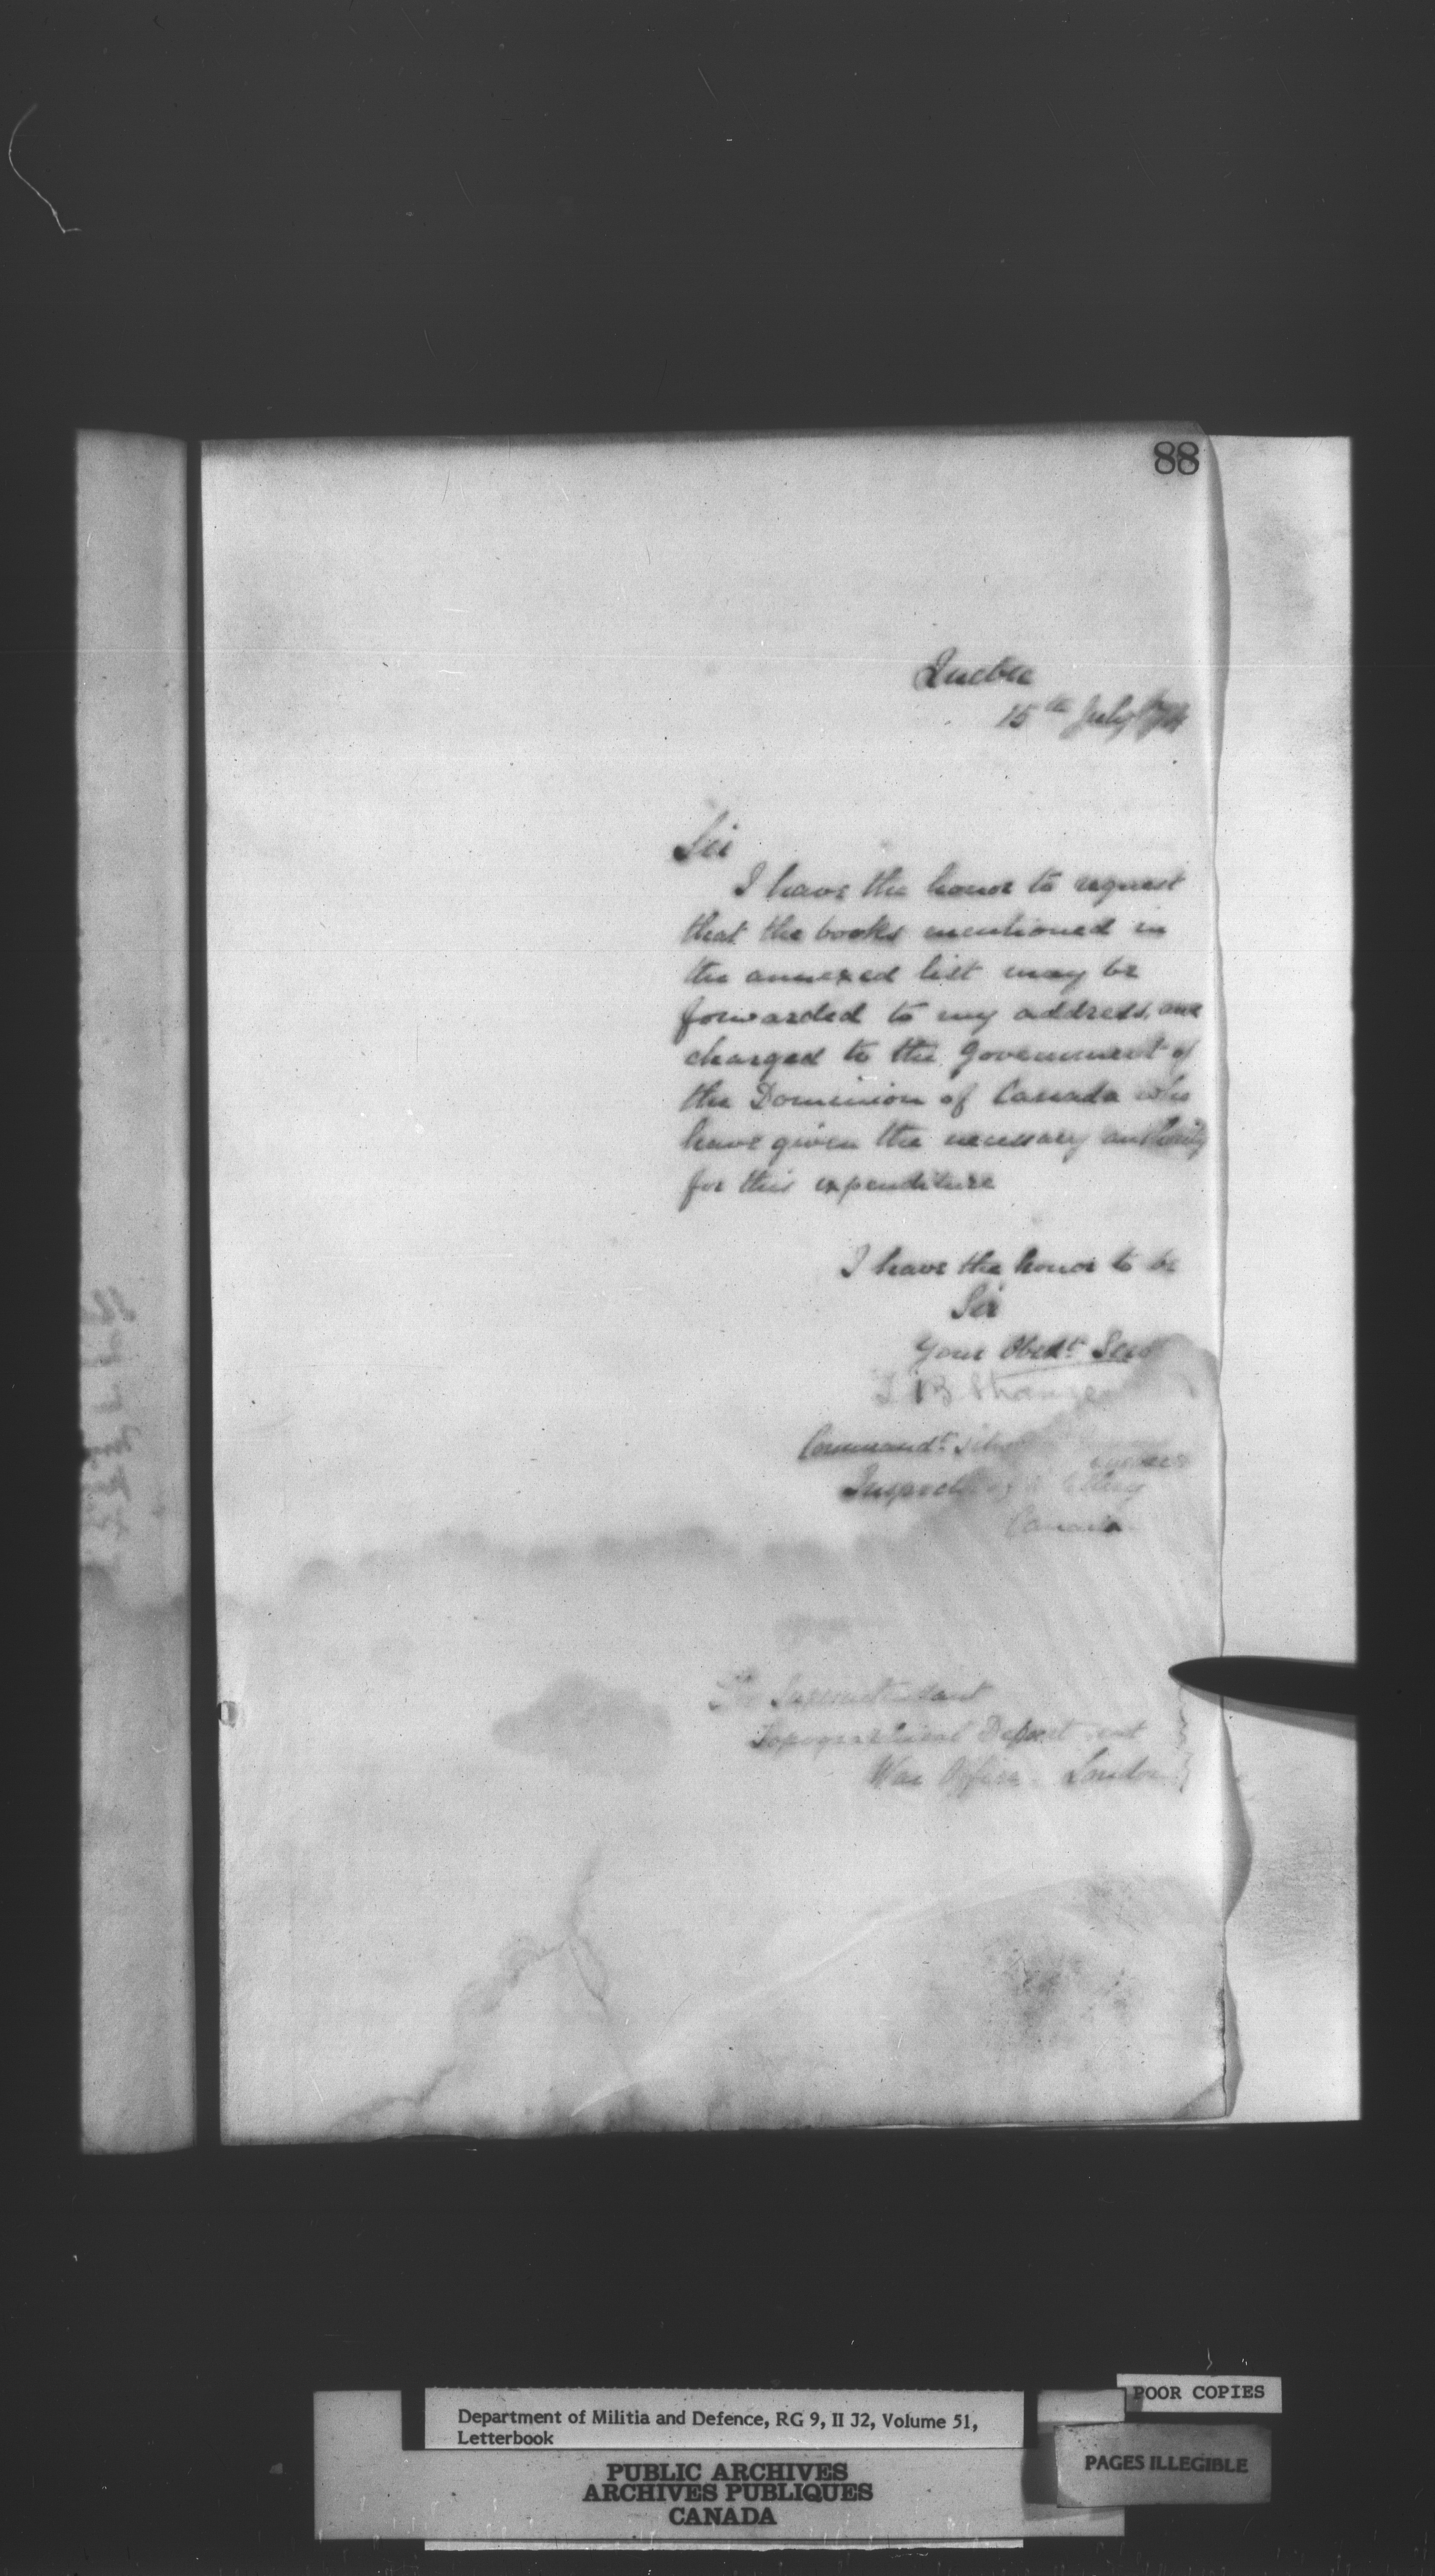 88
Quebec
15th July
Sir
I have the honor to request
that the books mentioned in
the annexed list may be
forwarded to my address, and
charged to the Government of
the Dominion of Canada who
have given the necessary authority
for this expenditure
I have the honor to be
Sir
Your Obedt Servt
T B Strange
Commandt
Inspector of Artillery
Canada
The Superintendant
Topographical Department
War Office London
POOR COPIES
Department of Militia and Defence, RG 9, II J2, Volume 51,
Letterbook
PAGES ILLEGIBLE
PUBLIC ARCHIVES
ARCHIVES PUBLIQUES
CANADA